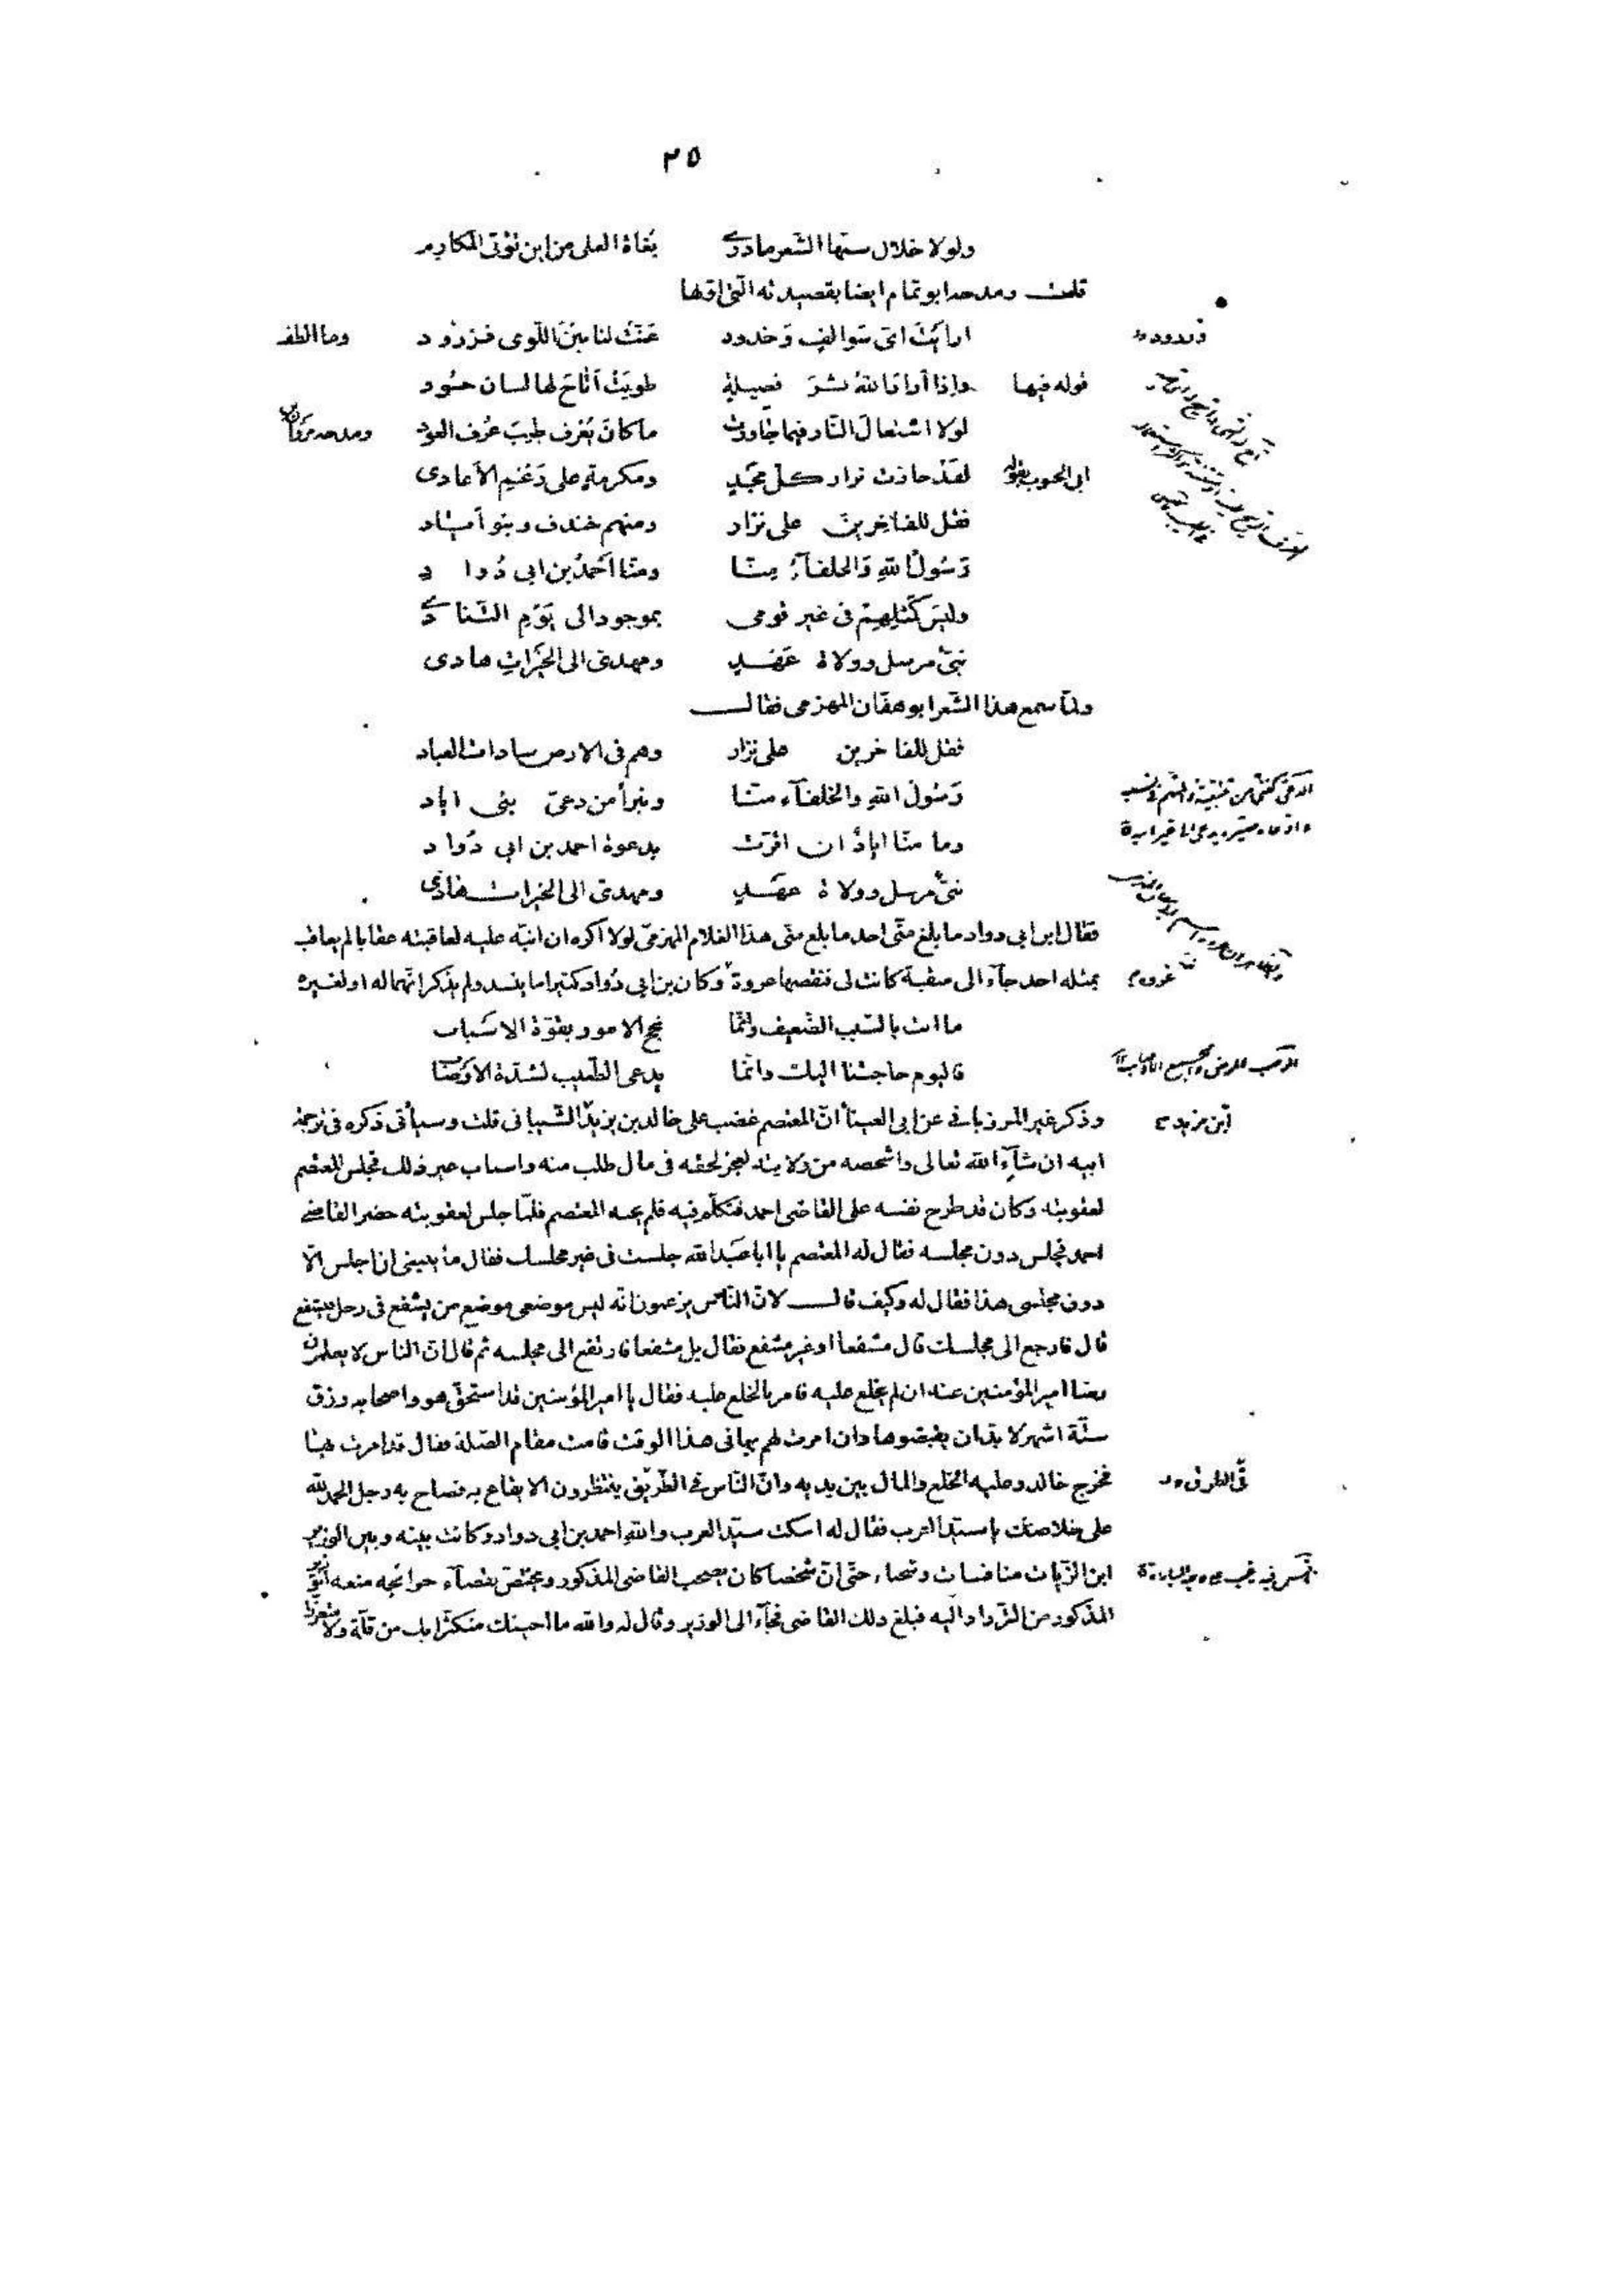 ٢٥
ولولا خلال سنها الشعر ما درى بغاة العلى من اين تؤتى المكارم
قلت ومدحه ابو تمام ايضا بقصيدته التى اولها
ارايت اى سوالف وخدود عنت لنا بين اللوى فزرود وما الطف
قوله فيها واذا اراد الله نشر فضيلة طويت اتاح لها لسان حسود
لولا اشتعال النار فيما جاورت ما كان يعرف طيب عرف العود ومدحه مروان بن
ابى الجنوب بقوله لقد حازت نزار كل مجد ومكرمة على رغم الاعادى
فقل للفاخرين على نزار ومنهم خندف وبنو اياد
رسول الله والخلفاء منا ومنا احمد بن ابى دواد
وليس كمثلهم فى غير قومى بموجود الى يوم التنادى
نبى مرسل وولاة عهد ومهدى الى الخيرات هادى
ولما سمع هذا الشعر ابو هفان المهزمى فقال
فقل للفاخرين على نزار وهم فى الارض سادات العباد
رسول الله والخلفاء منا ونبرأ من دعى بنى اياد
وما منا اياد ان اقرت بدعوة احمد بن ابى دواد
نبى مرسل وولاة عهد ومهدى الى الخيرات هادى
فقال ابن ابى دواد ما بلغ منى احد ما بلغ منى هذا الغلام المهزمى لولا اكره ان انبه عليه لعاقبته عقابا لم يعاقب
بمثله احد جاء الى منقبة كانت لى فنقضها عروة عروة وكان بن ابى دواد كثيرا ما ينشد ولم يذكر انهما له او لغيره
ما انت بالسبب الضعيف وانما نجح الامور بقوة الاسباب
فاليوم حاجتنا اليك وانما يدعى الطبيب لشدة الاوصاب
وذكر غير المرزبانى عن ابى العيناء ان المعتصم غضب على خالد بن يزيد الشيبانى قلت وسيأتى ذكره فى ترجمة
ابيه ان شاء الله تعالى واشخصه من ولايته لعجز لحقه فى مال طلب منه واسباب غير ذلك فجلس المعتصم
لعقوبته وكان قد طرح نفسه على القاضى احمد فتكلم فيه فلم يجبه المعتصم فلما جلس لعقوبته حضر القاضى
احمد فجلس دون مجلسه فقال له المعتصم يا ابا عبد الله جلست فى غير مجلسك فقال ما ينبغى ان اجلس الا
دون مجلسى هذا فقال له وكيف قال لان الناس يزعمون انه ليس موضعى موضع من يشفع فى رجل فيشفع
قال فارجع الى مجلسك قال مشفعا او غير مشفع فقال بل مشفعا فارتفع الى مجلسه ثم قال ان الناس لا يعلمون
رضا امير المؤمنين عنه ان لم يخلع عليه فامر بالخلع عليه فقال يا امير المؤمنين قد استحق هو واصحابه رزق
ستة اشهر لا بد ان يقبضوها وان امرت لهم بها فى هذا الوقت قامت مقام الصلة فقال قد امرت بها
فخرج خالد وعليه الخلع والمال بين يديه وان الناس فى الطريق ينتظرون الايقاع به فصاح به رجل الحمد لله
على خلاصك يا سيد العرب فقال له اسكت سيد العرب والله احمد بن ابى دواد وكانت بينه وبين الوزير
ابن الزيات منافسات وشحناء حتى ان شخصا كان يصحب القاضى المذكور ويختص بقضاء حوائجه منعه الوزير
المذكور من الترداد اليه فبلغ ذلك القاضى فجاء الى الوزير وقال له والله ما اجيئك متكثرا بك من قلة ولا متعززا